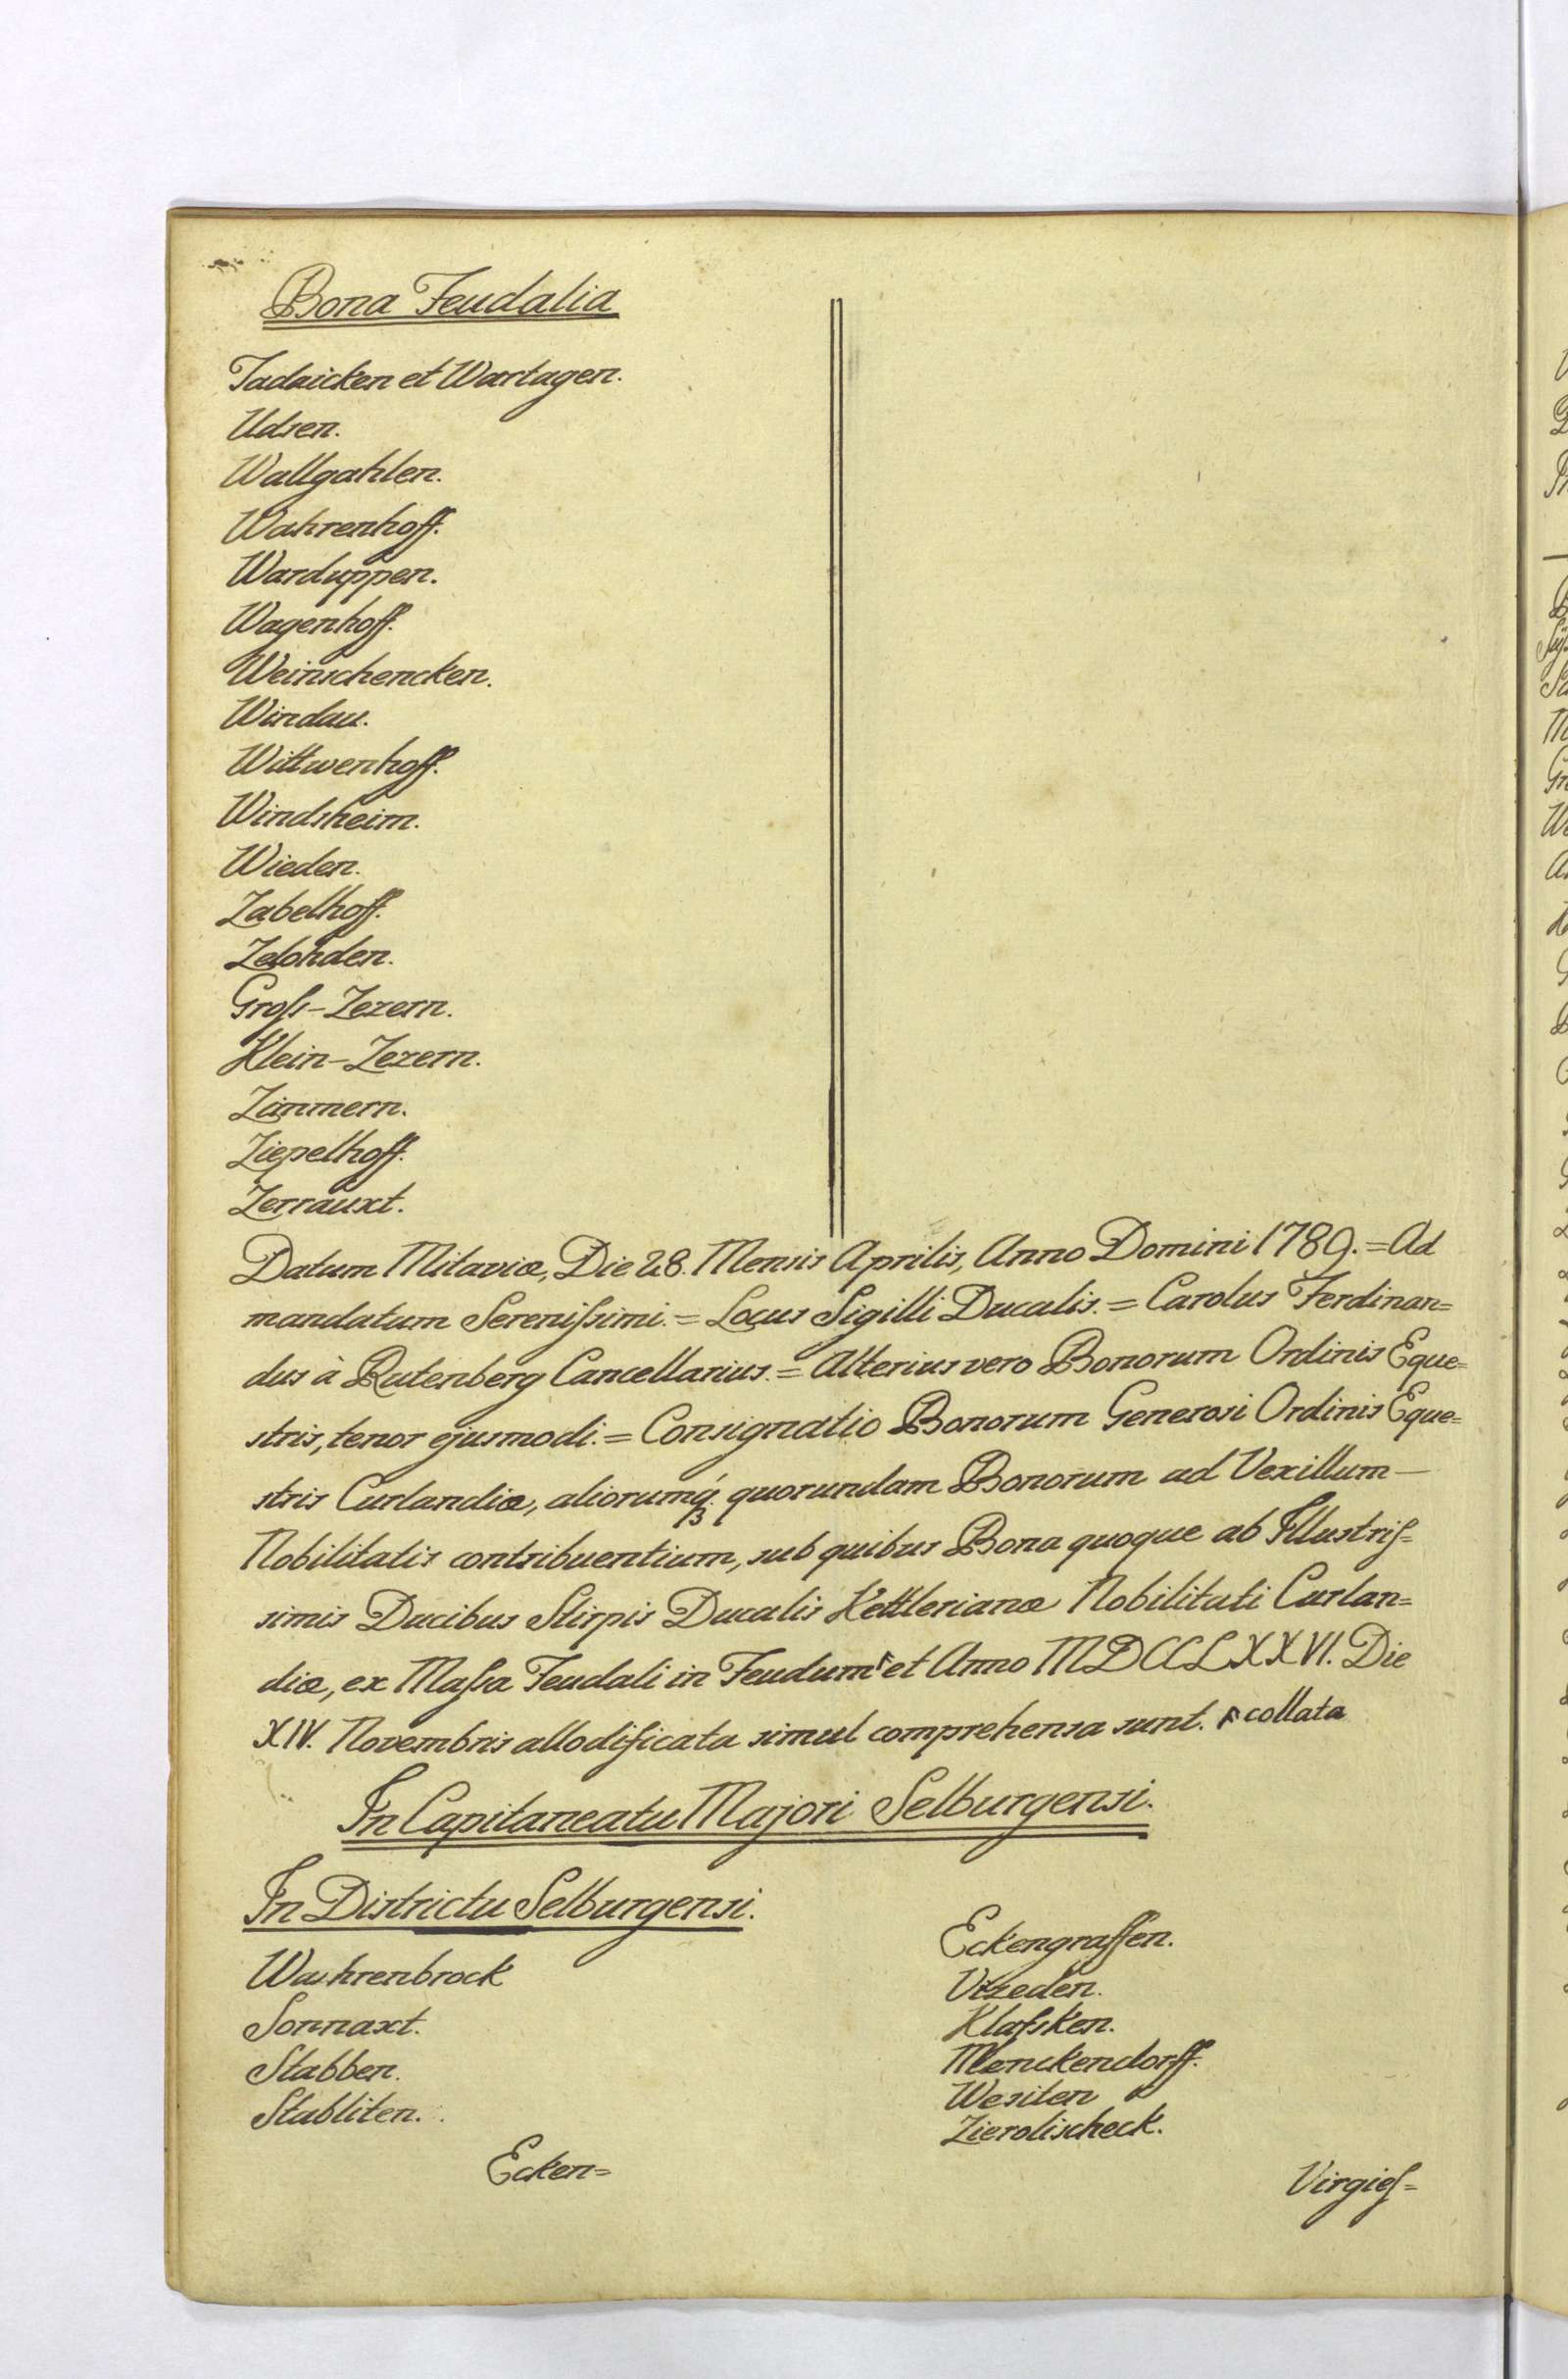 Bona Feudalia
Tadaicken et Wartagen.
Udsen.
Wallgahlen.
Wahrenhoff.
Warduppen.
Wagenhoff.
Weinschencken.
Windau.
Wittwenhoff.
Windsheim.
Wieden.
Zabelhoff.
Zelohden.
Groſs-Zezern.
Klein-Zezern.
Zimmern.
Ziepelhoff.
Zerrauxt.
Datum Mitaviæ, Die 28. Mensis Aprilis, Anno Domini 1789. = Ad
mandatum Sereniſsimi. = Locus Sigilli Ducalis. = Carolus Ferdinan=
dus à Rutenberg Cancellarius. = Alterius vero Bonorum Ordinis Eque=
stris, tenor ejusmodi. = Consignatio Bonorum Generosi Ordinis Eque=
stris Curlandiæ, aliorumq́ꝫ quorundam Bonorum ad Vexillum —
Nobilitatis contribuentium, sub quibus Bona quoque ab Illustriſ=
simis Ducibus Stirpis Ducalis Kettlerianæ Nobilitati Curlan=
diæ, ex Maſsa Feudali in Feudum ᴦ et Anno MDCCLXXVI. Die
XIV. Novembris allodificata simul comprehensa sunt. ᴦ collata
In Capitaneatu Majori Selburgensi.
In Districtu Selburgensi.
Wahrenbrock
Sonnaxt.
Stabben.
Stabliten.
Ecken=
Eckengraffen.
Vizeden.
Klaſsken.
Menckendorff.
Wesiten
Zierolischeck.
Virgieſ=